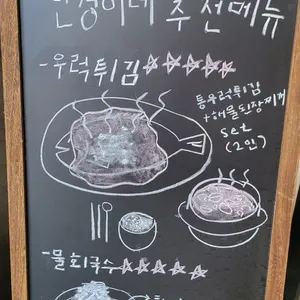 민경이네 추천메뉴
-우럭튀김 ☆☆☆☆☆
통우럭튀김
+해물된장찌개
set
(2인)
-물회국수 ☆☆☆☆☆